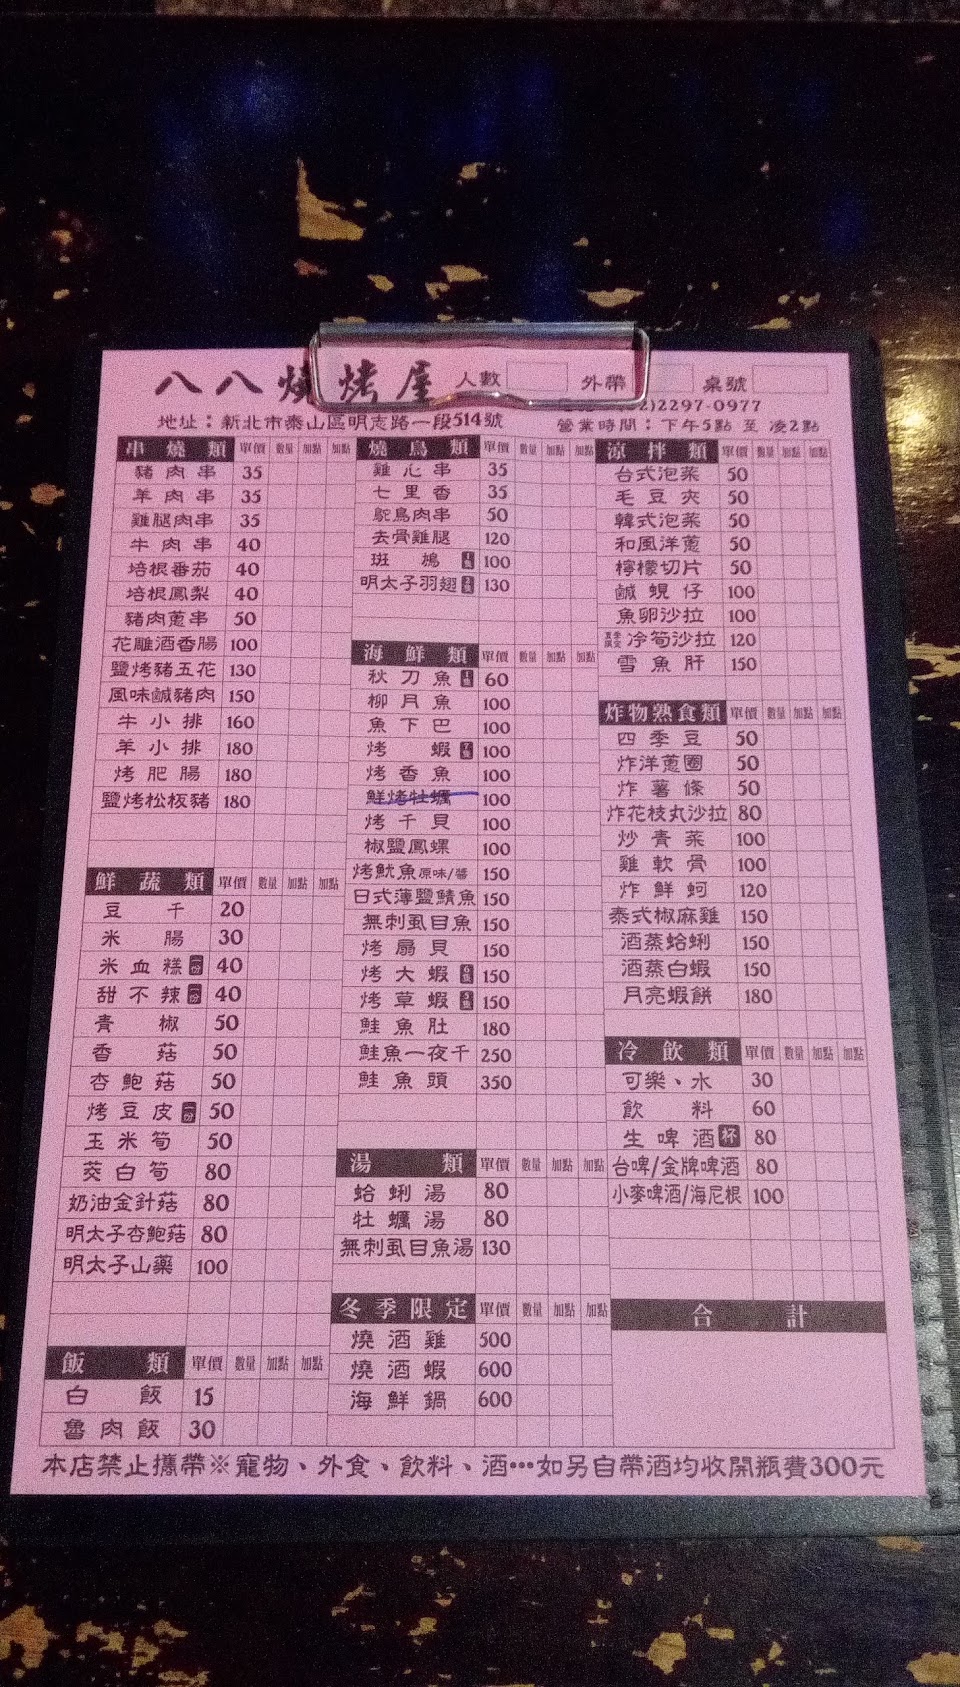 八八燒烤屋 人數 外帶 桌號
2)2297-0977
地址：新北市泰山區明志路一段514號 營業時間：下午5點 至 凌2點
串燒類 單價 數量 加點 加點
豬肉串 35
羊肉串 35
雞腿肉串 35
牛肉串 40
培根番茄 40
培根鳳梨 40
豬肉蔥串 50
花雕酒香腸 100
鹽烤豬五花 130
風味鹹豬肉 150
牛小排 160
羊小排 180
烤肥腸 180
鹽烤松板豬 180
鮮蔬類 單價 數量 加點 加點
豆干 20
米腸 30
米血糕 一份 40
甜不辣 一份 40
青椒 50
香菇 50
杏鮑菇 50
烤豆皮 一份 50
玉米筍 50
茭白筍 80
奶油金針菇 80
明太子杏鮑菇 80
明太子山藥 100
飯類 單價 數量 加點 加點
白飯 15
魯肉飯 30
燒鳥類 單價 數量 加點 加點
雞心串 35
七里香 35
鴕鳥肉串 50
去骨雞腿 120
斑鳩 100
明太子羽翅 130
海鮮類 單價 數量 加點 加點
秋刀魚 60
柳月魚 100
魚下巴 100
烤蝦 100
烤香魚 100
鮮烤牡蠣 100
烤干貝 100
椒鹽鳳螺 100
烤魷魚原味/醬 150
日式薄鹽鯖魚 150
無刺虱目魚 150
烤扇貝 150
烤大蝦 150
烤草蝦 150
鮭魚肚 180
鮭魚一夜干 250
鮭魚頭 350
湯類 單價 數量 加點 加點
蛤蜊湯 80
牡蠣湯 80
無刺虱目魚湯 130
冬季限定 單價 數量 加點 加點
燒酒雞 500
燒酒蝦 600
海鮮鍋 600
涼拌類 單價 數量 加點 加點
台式泡菜 50
毛豆夾 50
韓式泡菜 50
和風洋蔥 50
檸檬切片 50
鹹蜆仔 100
魚卵沙拉 100
冷筍沙拉 120
雪魚肝 150
炸物熟食類 單價 數量 加點 加點
四季豆 50
炸洋蔥圈 50
炸薯條 50
炸花枝丸沙拉 80
炒青菜 100
雞軟骨 100
炸鮮蚵 120
泰式椒麻雞 150
酒蒸蛤蜊 150
酒蒸白蝦 150
月亮蝦餅 180
冷飲類 單價 數量 加點 加點
可樂、水 30
飲料 60
生啤酒 杯 80
台啤/金牌啤酒 80
小麥啤酒/海尼根 100
合計
本店禁止攜帶※寵物、外食、飲料、酒…如另自帶酒均收開瓶費300元